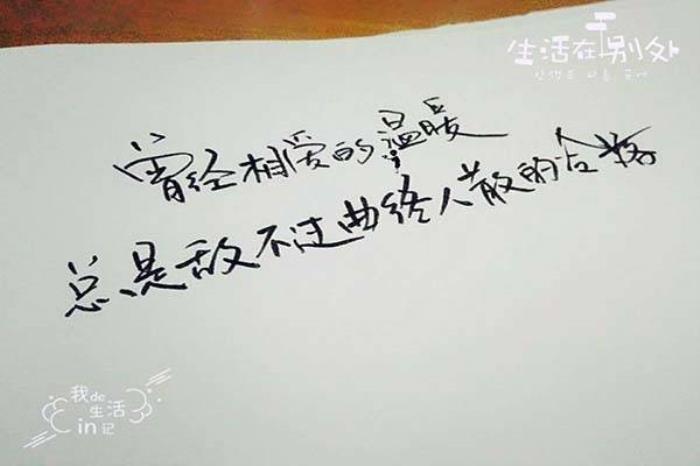 生活在别处
曾经相爱的温暖
总是敌不过曲终人散的
我de
生活
in记